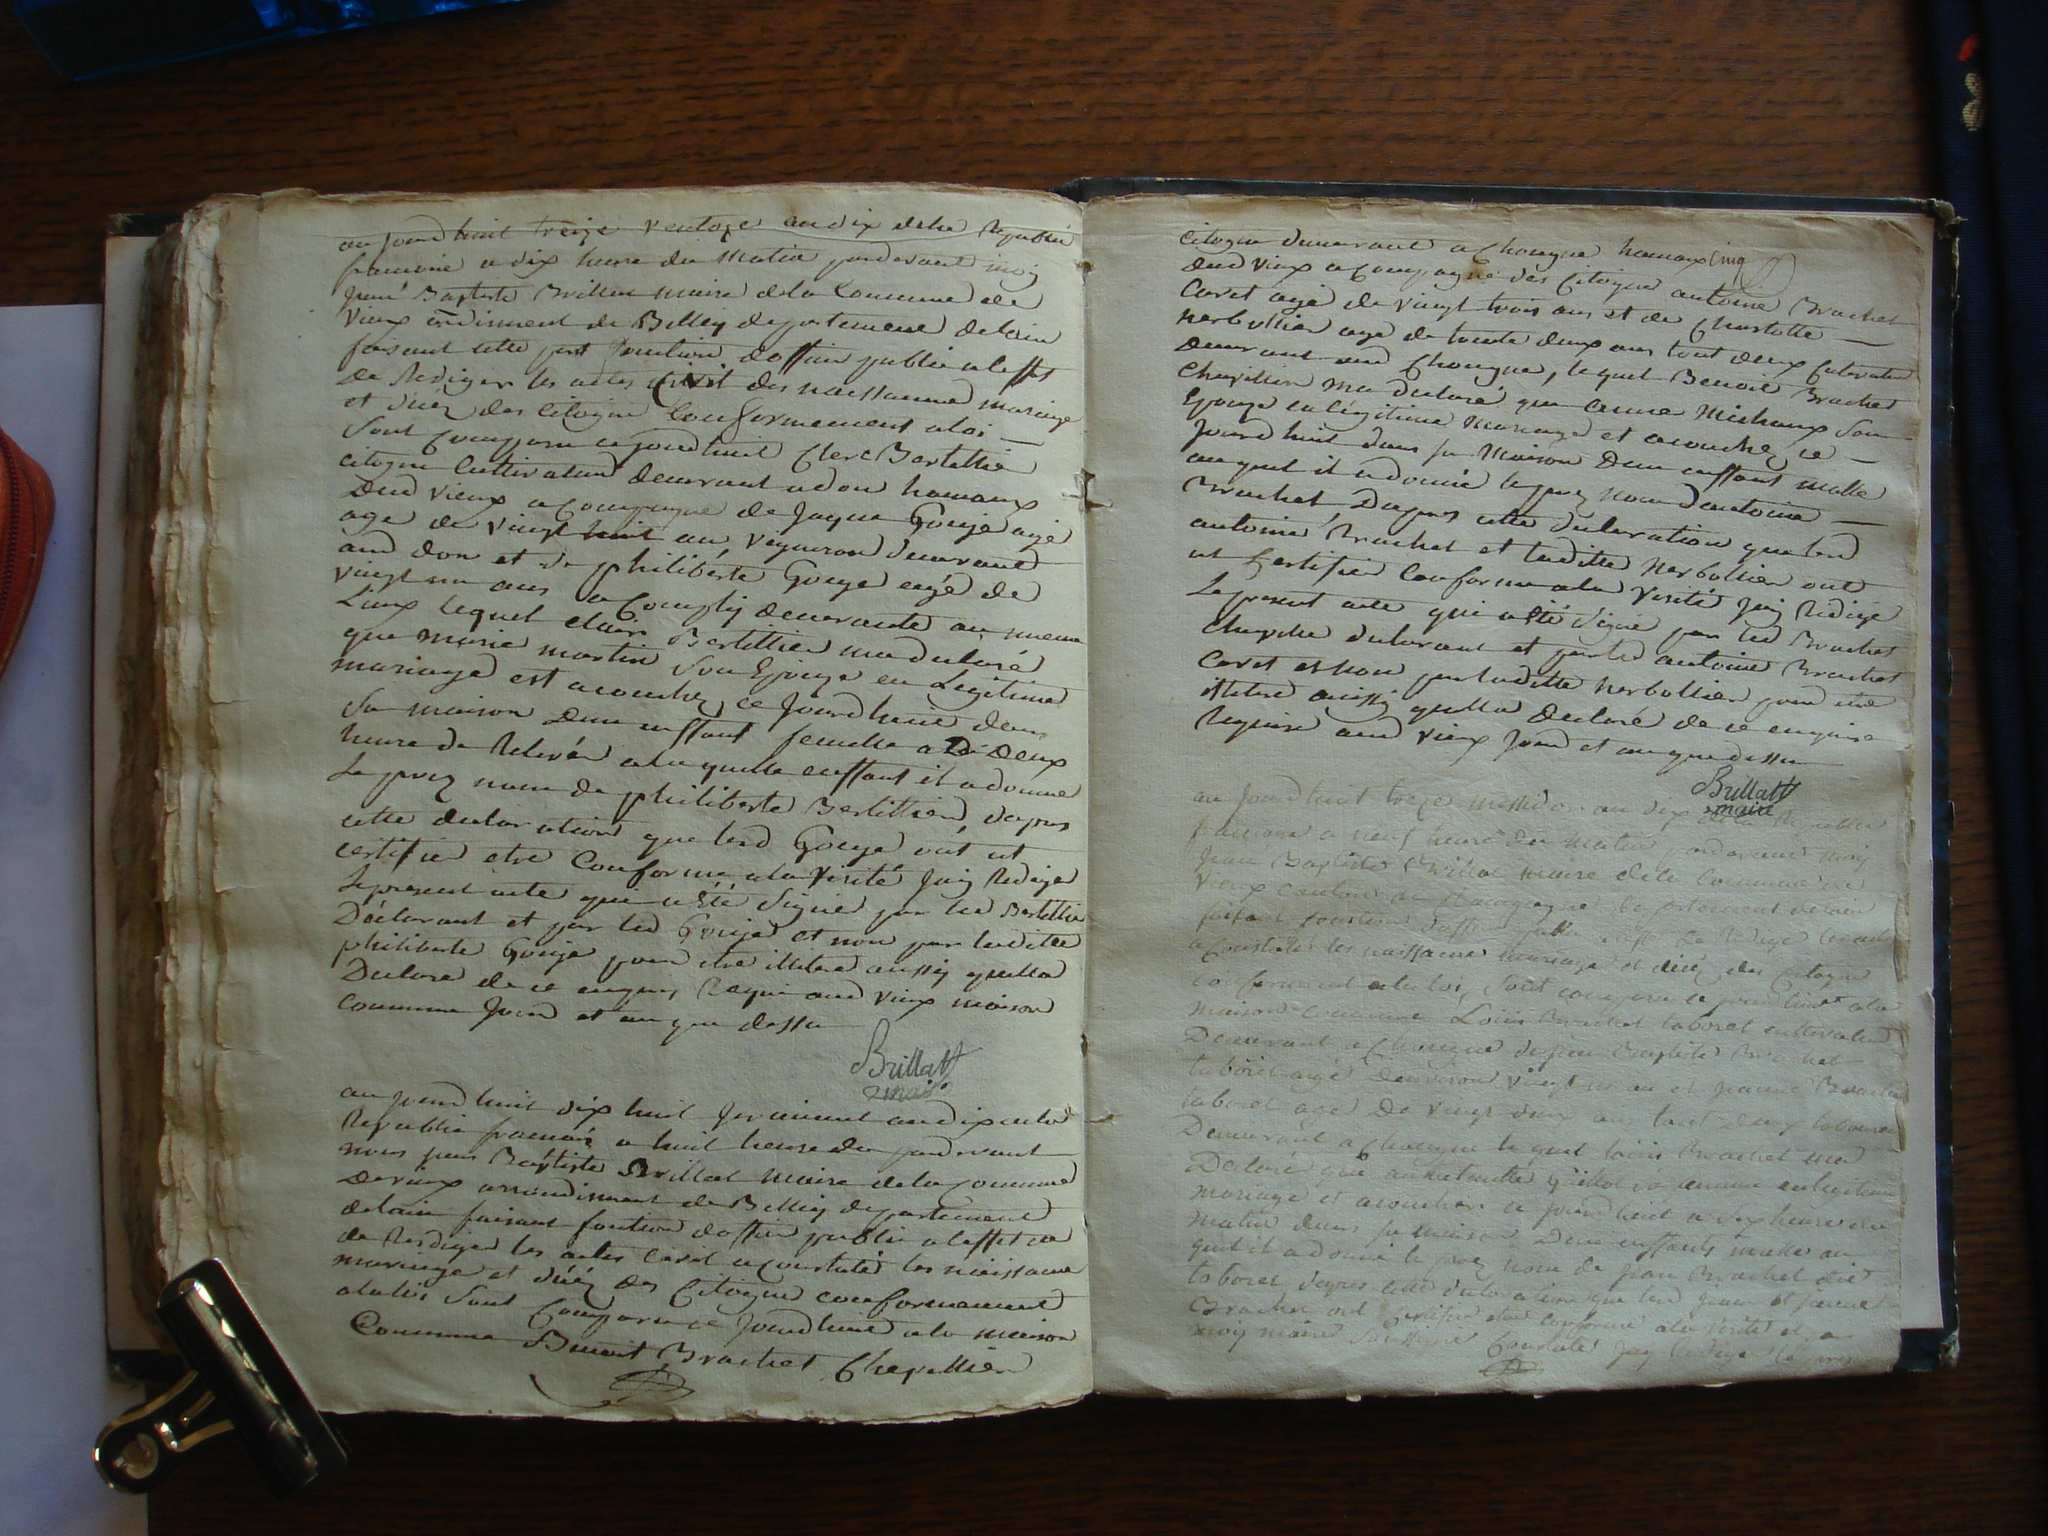 au jourd huit treize ventoze an dix de la Republi
francoise a dix heure du matin pardevant moy
Jean Baptiste Brillat maire de la Commune de
Vieux arrondisment de Belley departement de lain
faisant cette part fonction doffier public a leffet
De Rediger les actes Civil des naissance mariage
et déces des Citoyen Conformement a loi
sont comparu ce jourdhuit Clerc Bertellier
citoyen Cultivataur demurant a don hamaux
dud Vieux acompagne de Jaque Gouje agé
age de vingt huit an, vigneron demurant
aud don et de philiberte Gouge eagé de
vingt un ans a Complis demurante au meme
Lieux lequel Bertellier ma declaré
que marie martin son Epouze en Legitime
mariage est acouchez ce Jourdhuit dans
sa maison dun enffant femelle a deux
heure de Relevée a la quelle enffant il a donné
Le prez nom de philiberte Bertillier, dapres
cette declaration que led Gouge ont et
certifier etre Conforme a la Vérité Jaiy Redigé
le present acte qui a été signé par led Bertellie
Déclarant et par led Gouje et non par ladite
philiberte Gouje pour etre illitere aussiy quella
Declare de ce enquis Requis aud Vieux maison
commune Jour et an que dessu
Brillat
maire
au jourdhuit dix huit Jerminal an dix de la
Republic francais a huit heure du pardevant
nous jean Baptiste Brillat maire de la Commune
De vieux arrondisment de Belley departement
delain faisant fontion doffier public a leffet de
de Rediger les actes Civil a constaté les naissance
mariage et décéz des Citoyen conformement
a la loi sont Comparu ce Jourdhuit a la maison
Commune Benoit Brachet Chapellier
citoyen demurant a Chongne hamaux cinq
dud Vieux acompagné des Citoyen antoine Brachet
Caret agé de vingt trois ans et de Charlotte
Herbollier age de trente deux ans tout deux Cultivateur
demurant aud Chongne, lequel Benoit Brachet
Chapellier ma declaré que anne Michaux son
Epouze en légitime mariage et acouchez ce
Jourdhuit dans sa maison Dun enffant malle
auquel il a donné le prez nom dantoine
Brachet, Dapres cette declaration que led
antoine Brachet et laditte Herbollier ont
et Certifier Conforme a la Verité Jaiy Redige
Le present acte qui a été signé par led Brachet
Chapelie declarant et par led antoine Brachet
Caret et non par laditte Herbollier pour etre
illitere aussiy quella declaré de ce enquise
Requise aud Vieux Jour et an que dessu
Brillat
maire
au Jourdhuit treze messidor an dix de la Republic
francaise a neuf heure du matin pardevant moiy
Jean Baptiste Brillat maire de la Commune de
Vieux canton de Champagne departement delain
faisant fonction doffier public Redige les actes
a Constater les naissance mariage et décéz des Citoyen
conforment a la loi, sont comparu ce jourdhuit a la
maison Commune Loüis Brachet taboret cultivateur
Demurant a Chongne de jean Baptiste Brachet
taboret agé denviron vingt un an et jeanne Brachet
taboret age De vingt deux ans tout deux laboureur
Demurant a Chongne lequel loüis Brachet ma
Declaré que anthelmette Quillot sa femme en legitime
mariage et acouchez ce jourdhuit a six heure du
matin dans sa maison Dun enffants malle au
quel il a donné le prez nom de jean Brachet dit
taboret dapres cette declaration que led jean et jeanne
Brachet ont Certifié etre conforme a la Verité et par
moiy maire soussigné Constaté Jaiy Redigé le pres